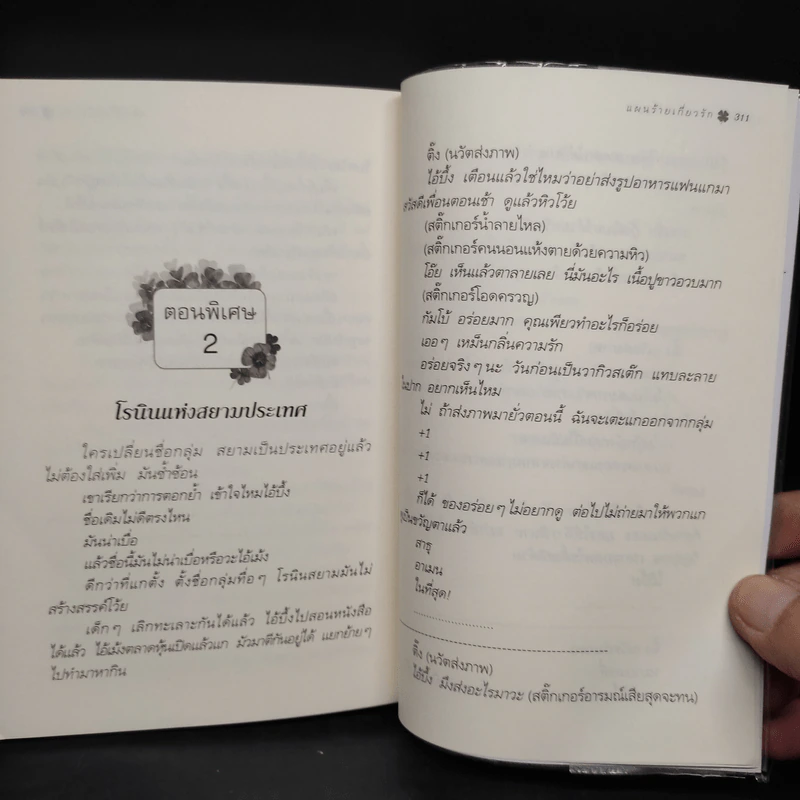 ตอนพิเศษ
2
โรนินแห่งสยามประเทศ
ใครเปลี่ยนชื่อกลุ่ม สยามเป็นประเทศอยู่แล้ว
ไม่ต้องใส่เพิ่ม มันซ้ำซ้อน
เขาเรียกว่าการตอกย้ำ เข้าใจไหมไอ้บิ้ง
ชื่อเดิมไม่ดีตรงไหน
มันน่าเบื่อ
แล้วชื่อนี้มันไม่น่าเบื่อหรือวะไอ้เม้ง
ดีกว่าที่แกตั้ง ตั้งชื่อกลุ่มทื่อๆ โรนินสยามมันไม่
สร้างสรรค์โว้ย
เด็กๆ เลิกทะเลาะกันได้แล้ว ไอ้บิ้งไปสอนหนังสือ
ได้แล้ว ไอ้เม้งตลาดหุ้นเปิดแล้วแก มัวมาตีกันอยู่ได้ แยกย้ายๆ
ไปทำมาหากิน
แผนร้ายเกี่ยวรัก 311
ติ๊ง (นวัตส่งภาพ)
ไอ้บิ้ง เตือนแล้วใช่ไหมว่าอย่าส่งรูปอาหารแฟนแกมา
สวัสดีเพื่อนตอนเช้า ดูแล้วหิวโว้ย
(สติ๊กเกอร์น้ำลายไหล)
(สติ๊กเกอร์คนนอนแห้งตายด้วยความหิว)
โอ๊ย เห็นแล้วตาลายเลย นี่มันอะไร เนื้อปูขาวอวบมาก
(สติ๊กเกอร์โอดครวญ)
กัมโบ้ อร่อยมาก คุณเพียวทำอะไรก็อร่อย
เออๆ เหม็นกลิ่นความรัก
อร่อยจริงๆ นะ วันก่อนเป็นวากิวสเต๊ก แทบละลาย
ในปาก อยากเห็นไหม
ไม่ ถ้าส่งภาพมายั่วตอนนี้ ฉันจะเตะแกออกจากกลุ่ม
+1
+1
+1
ก็ได้ ของอร่อยๆ ไม่อยากดู ต่อไปไม่ถ่ายมาให้พวกแก
เป็นขวัญตาแล้ว
สาธุ
อาเมน
ในที่สุด!
ติ๊ง (นวัตส่งภาพ)
ไอ้บิ้ง มึงส่งอะไรมาวะ (สติ๊กเกอร์อารมณ์เสียสุดจะทน)